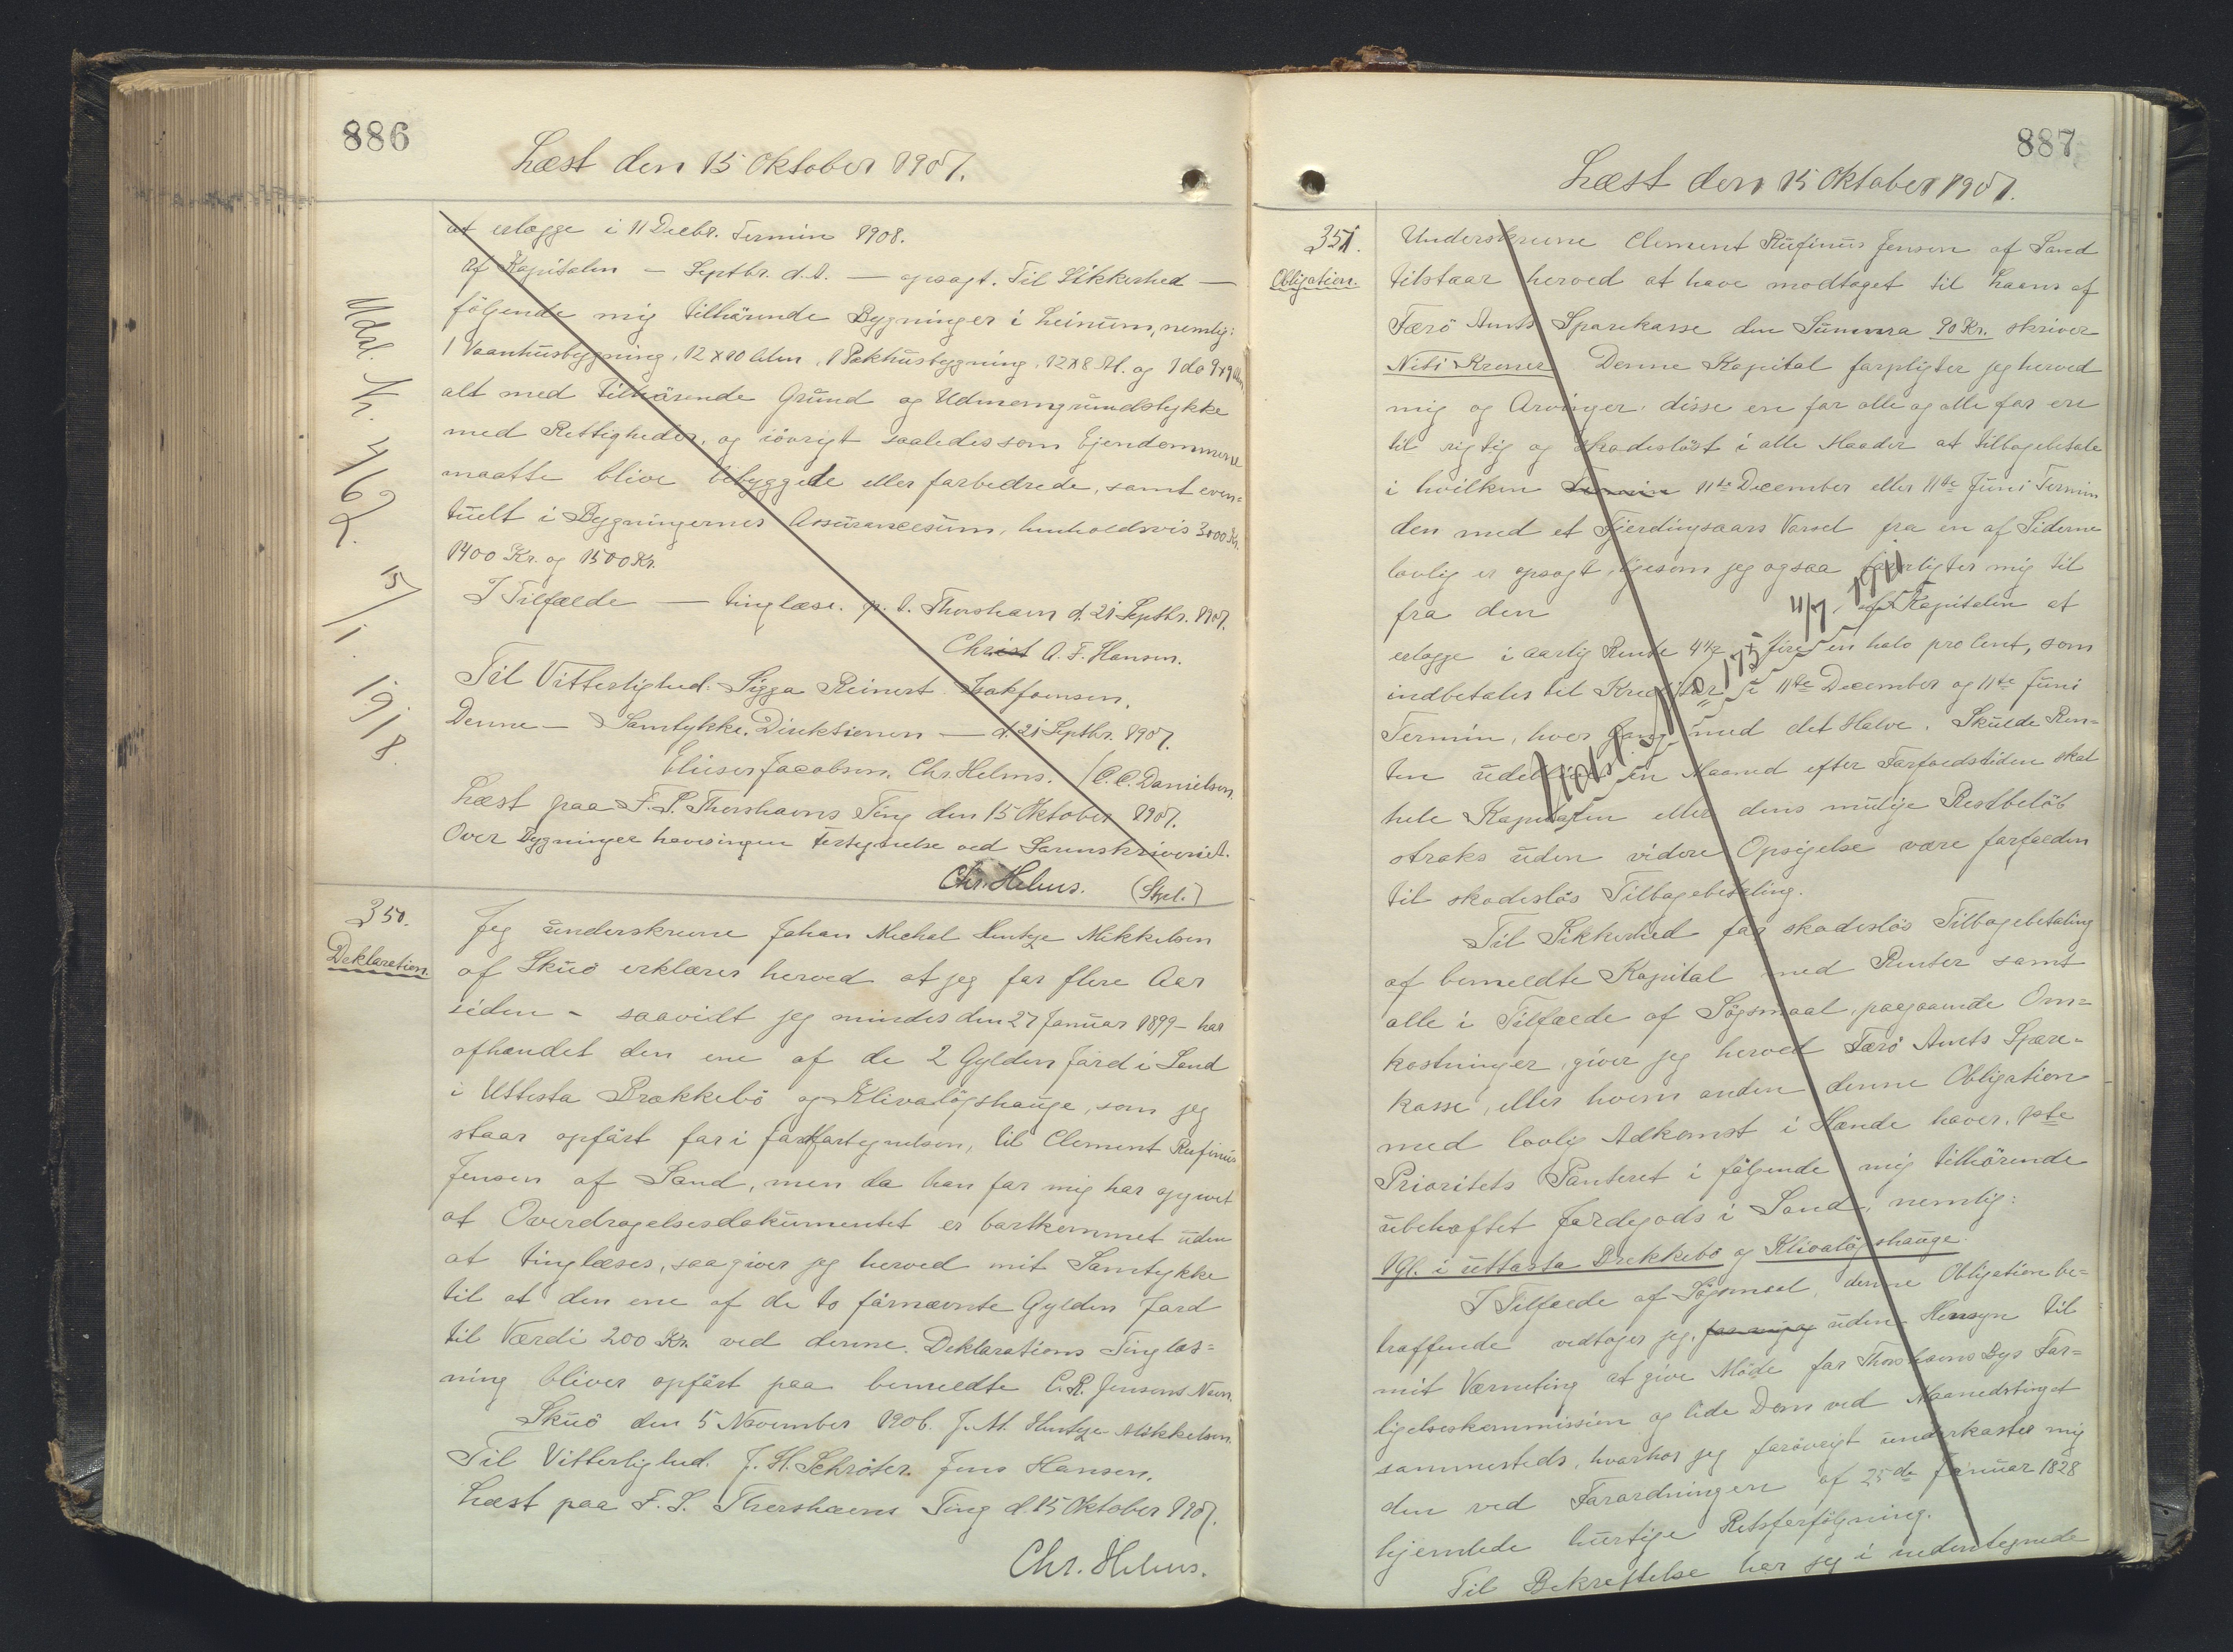 886
Læst den 15 Oktober 1907.
at erlægge i 11 Decbr. Termin 1908.
Af Kapitalen — Septbr. d. A. — opsagt. Til Sikkerhed —
følgende mig tilhørende Bygninger i Leinum, nemlig:
1 Vaanhusbygning, 12 x 10 Alen, 1 Pakhusbygning, 12 x 8 Al. og 1 do 9 x 9 Alen
alt med tilhørende Grund og Udmarksgrundstykke
med Rettigheder, og iøvrigt saaledes som Ejendommene
maatte blive bebyggede eller forbedrede, samt even=
tuelt i Bygningernes Assurancesum, henholdsvis 3000 Kr.
1400 Kr. og 1500 Kr.
I Tilfælde — tinglæse. p. t. Thorshavn d. 21 Septbr. 1907.
Christ A. F. Hansen.
Til Vitterlighed: Sigga Reinert. Isak Joensen.
Denne — Samtykke. Direktionen — d. 21 Septbr. 1907.
Elieser Jacobsen. Chr. Helms. / C. C. Danielsen.
Læst paa F. S. Thorshavns Ting den 15 Oktober 1907.
Over Bygninger haves ingen Fortegnelse ved Sorenskriveriet.
Chr. Helms. (Stpl.)
Udsl. Nr. 462. 15/1. 1918.
350.
Deklaration.
Jeg underskrevne Johan Michal Hentze Mikkelsen
af Skuø erklærer herved at jeg for flere Aar
siden – saavidt jeg mindes den 27 Januar 1899 – har
afhændet den ene af de 2 Gylden Jord i Sand
i Uttasta Brekkebø og Klivaløgshauge, som jeg
staar opført for i Jordfortegnelsen, til Clement Rufinus
Jensen af Sand, men da han for mig har opgivet
at Overdragelsesdokumentet er bortkommet uden
at tinglæses, saa giver jeg herved mit Samtykke
til at den ene af de to førnævnte Gylden Jord
til Værdi 200 Kr. ved denne Deklarations Tinglæs=
ning bliver opført paa bemeldte C. R. Jensens Navn.
Skuø den 5 November 1906. J. M. Hentze Mikkelsen.
Til Vitterlighed. J. H. Schrøter. Jens Hansen.
Læst paa F. S. Thorshavns Ting d. 15 Oktober 1907.
Chr. Helms.
887
Læst den 15 Oktober 1907.
351.
Obligation.
Underskrevne Clement Rufinus Jensen af Sand
tilstaar herved at have modtaget til Laans af
Færø Amts Sparekasse den Summa 90 Kr. skriver
Niti Kroner. Denne Kapital forpligter jeg herved
mig og Arvinger, disse en for alle og alle for en
til rigtig og skadesløst i alle Maader at tilbagebetale
i hvilken Termin 11te December eller 11te Juni Termin
den med et Fjerdingaars Varsel fra en af Siderne
lovlig er opsagt, ligesom jeg ogsaa forpligter mig til
fra den af Kapitalen at
erlægge i aarlig Rente 4 1/2 fire en halv pro Cent, som
indbetales til Kreditor i 11te December og 11te Juni
Termin, hver Gang med det Halve. Skulde Ren=
ten udeblive en Maaned efter Forfaldstiden skal
hele Kapitalen eller dens mulige Restbeløb
straks uden videre Opsigelse være forfalden
til skadesløs Tilbagebetaling.
Til Sikkerhed for skadesløs Tilbagebetaling
af bemeldte Kapital med Renter samt
alle i Tilfælde af Søgsmaal, paagaaende Om=
kostninger, giver jeg herved Færø Amts Spare=
kasse, eller hvem anden denne Obligation
med lovlig Adkomst i Hænde haver, 1ste
Prioritets Panteret i følgende mig tilhørende
ubehæftet Jordegods i Sand, nemlig:
1 Gl. i uttasta Brekkebø og Klivaløgshauge.
I Tilfælde af Søgsmaal, denne Obligation be=
træffende vedtager jeg, for mig og uden Hensyn til
mit Værneting at give Møde for Thorshavns Bys For=
ligelseskommission og lide Dom ved Maanedstinget
sammesteds, hvorhos jeg forøvrigt underkaster mig
den ved Forordningen af 25de Januar 1828
hjemlede hurtige Retsforfølgning.
Til Bekræftelse har jeg i undertegnede